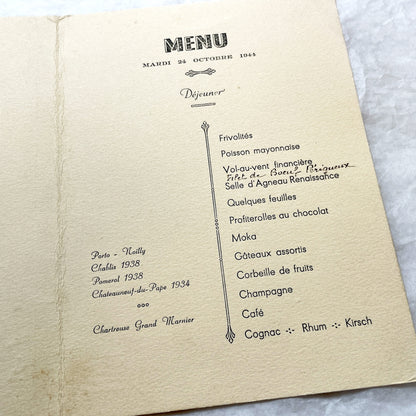 MENU
MARDI 24 OCTOBRE 1944
Déjeuner
Frivolités
Poisson mayonnaise
Vol-au-vent financière
Filet de Boeuf Périgueux
Selle d'Agneau Renaissance
Quelques feuilles
Profiterolles au chocolat
Moka
Gâteaux assortis
Corbeille de fruits
Champagne
Café
Cognac -:- Rhum -:- Kirsch
Porto - Noilly
Chablis 1938
Pomerol 1938
Chateauneuf-du-Pape 1934
Chartreuse Grand Marnier